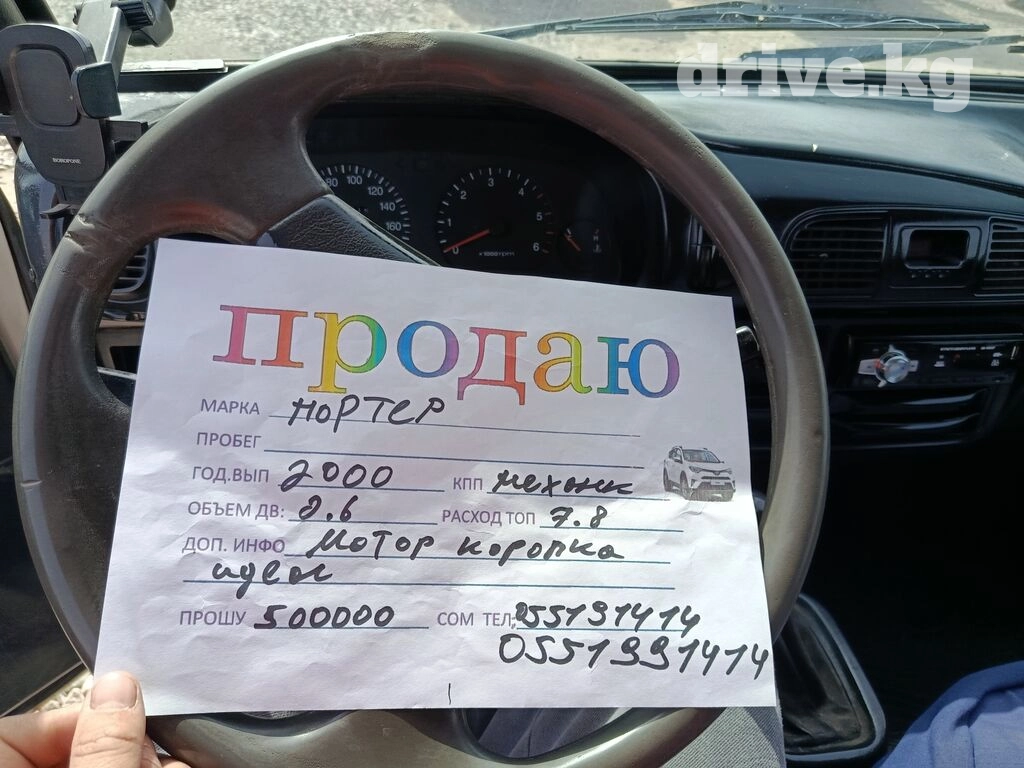 drive.kg
BOROFONE
80 100 120 140 160
0 1 2 3 4 5 6
x1000rpm
продаю
МАРКА портер
ПРОБЕГ
ГОД.ВЫП 2000 КПП механик
ОБЪЕМ ДВ: 2.6 РАСХОД ТОП 7.8
ДОП. ИНФО Мотор коропка
идеал
ПРОШУ 500000 СОМ ТЕЛ: 055191414
0551991414